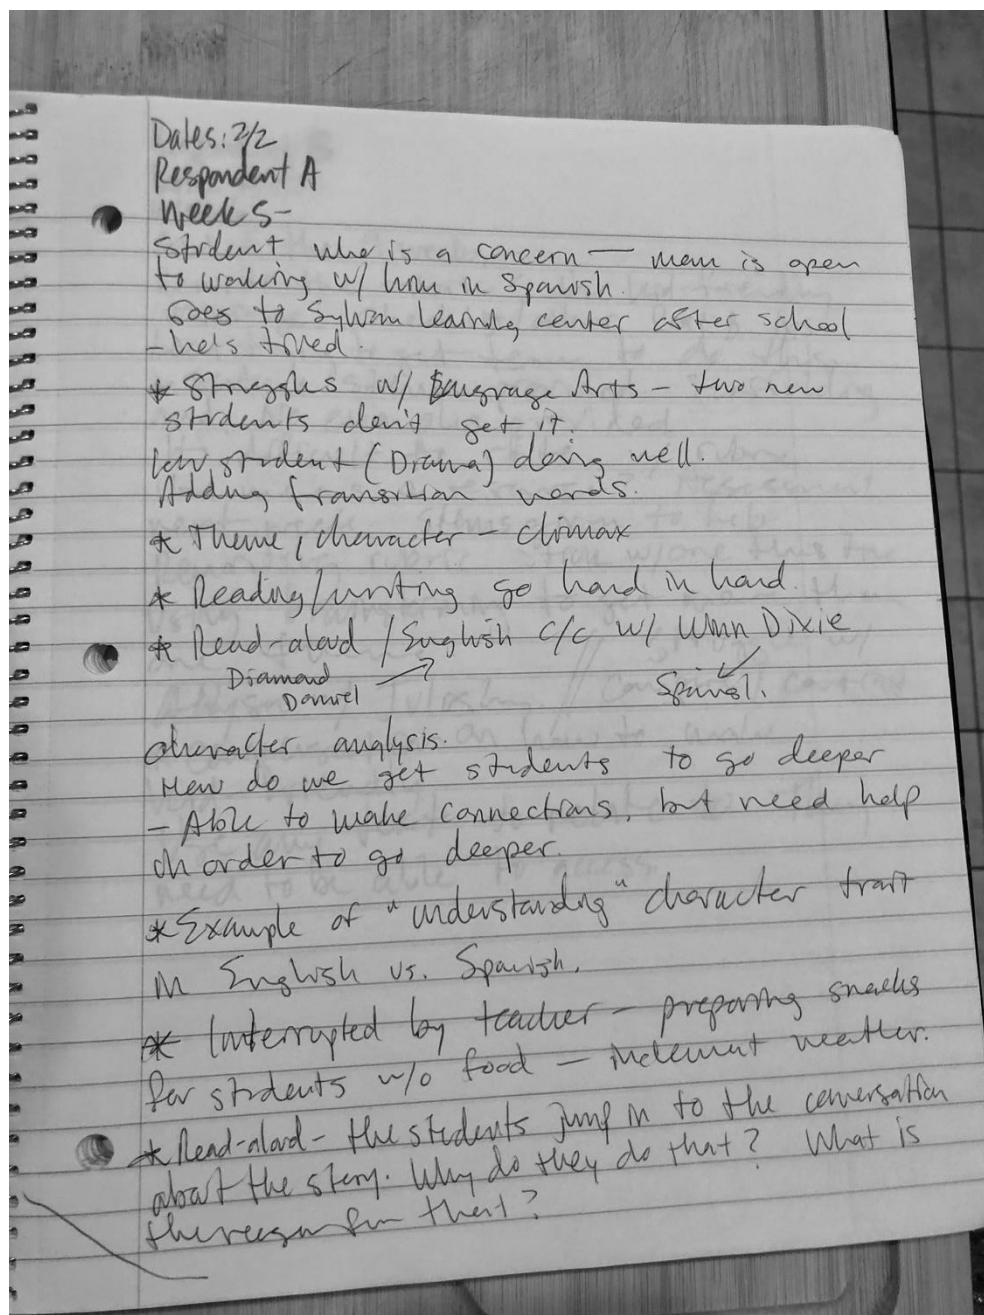 Dates: 2/2
Respondent A
Week 5-
Student who is a concern — mom is open
to working w/ him in Spanish.
Goes to Sylvan Learning center after school
- he's tired.
* Struggles w/ Language Arts - two new
students don't get it.
low student (Drama) doing well.
Adding transition words.
* Theme, character - climax
* Reading/writing go hand in hand.
* Read-aloud / English c/c w/ Winn Dixie
Diamond
Daniel
Spanish.
character analysis.
How do we get students to go deeper
- Able to make connections, but need help
in order to go deeper.
* Example of "understanding" character trait
in English vs. Spanish.
* Interrupted by teacher - preparing snacks
for students w/o food - inclement weather.
* Read-aloud - the students jump in to the conversation
about the story. Why do they do that? What is
the reason for that?